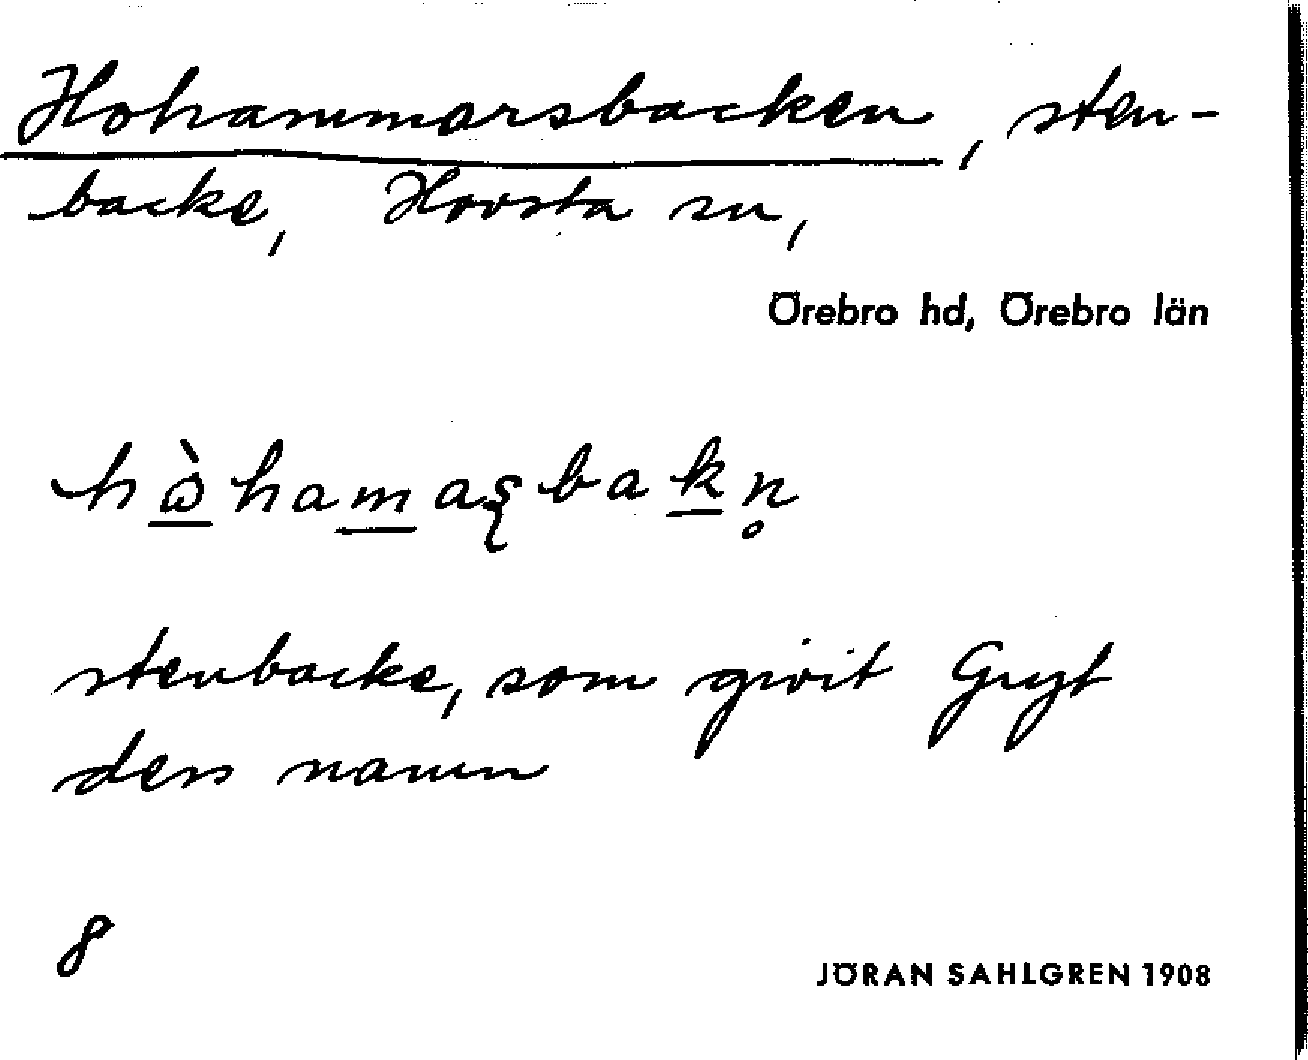 Hohammarsbacken, sten-
backe, Hovsta sn,
Örebro hd, Örebro län
hɷ̀hamaʂbakn̥
stenbacke, som givit Gryt
dess namn
8
JÖRAN SAHLGREN 1908